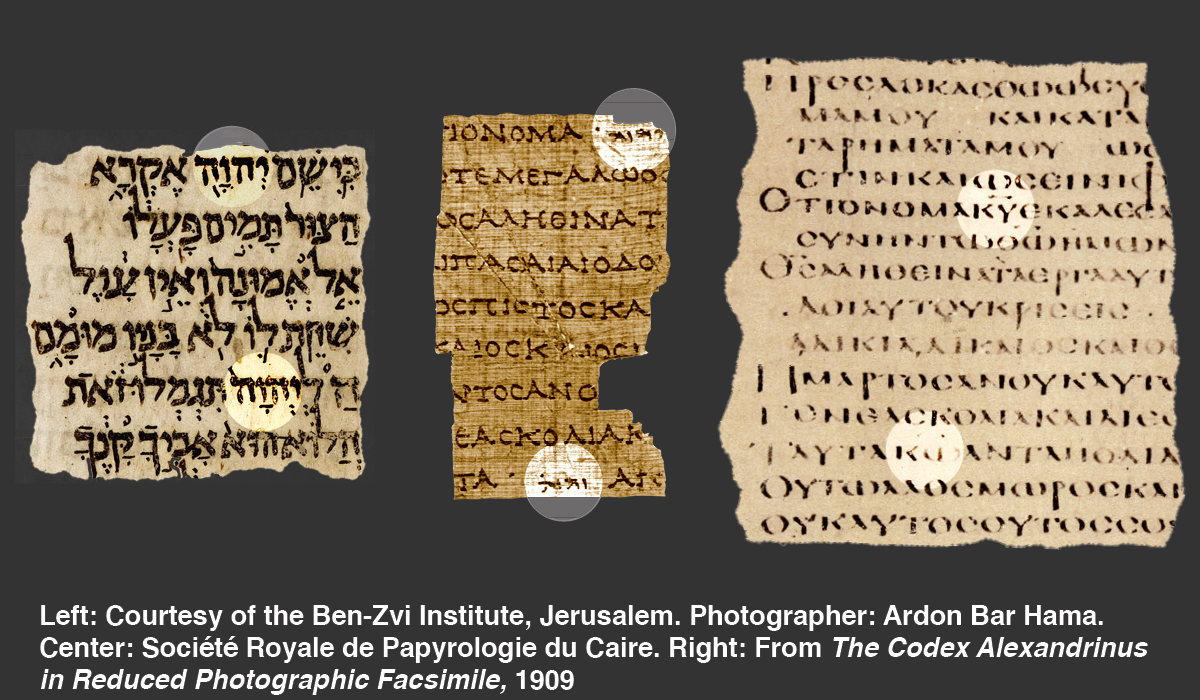 כִּי שֵׁם יְהוָה אֶקְרָא
הַצּוּר תָּמִים פָּעֳלוֹ
אֵל אֱמוּנָה וְאֵין עָוֶל
שִׁחֵת לוֹ לֹא בָּנָיו מוּמָם
הַ לְיְהוָה תִּגְמְלוּ זֹאת
הֲלוֹא הוּא אָבִיךָ קָּנֶךָ
ΙΟΝΟΜΑ יהוה
ΤΕΜΕΓΑΛΩϹ
ϹΑΛΗΘΙΝΑΤ
ΠΑϹΑΙΑΙΟΔΟ
ΟϹΠΙϹΤΟϹΚΑ
ΚΑΙΟϹΚ ΙΟϹ
ΡΤΟϹΑΝΟ
ΕΑϹΚΟΛΙΑΚ
ΤΑ יהוה ΑΝ
ΠΡΟϹΔΟΚΑϹΘΩΩϹΥ
ΜΑΜΟΥ ΚΑΙΚΑΤΑ
ΤΑΡΗΜΑΤΑΜΟΥ ΩϹ
ϹΤΙΝΚΑΙΩϹΕΙΝΙΦ
ΟΤΙΟΝΟΜΑΚΥΕΚΑΛΕϹΑ
ϹΥΝΗΝΤΩΘΩΗΜΩΝ
ΘϹΑΛΗΘΕΙΝΑΤΑΕΡΓΑΑΥΤ
ΔΟΙΑΥΤΟΥΚΡΙϹΕΙϹ
ΔΙΚΙΑΔΙΚΑΙΟϹΚΑΙΟϹ
ΗΜΑΡΤΟϹΑΝΟΥΚΑΥΤΩ
ΓΕΝΕΑϹΚΟΛΙΑΚΑΙΔΙΕϹ
ΤΑΥΤΑΚΩΑΝΤΑΠΟΔΙΔ
ΟΥΤΩΛΑΟϹΜΩΡΟϹΚΑΙ
ΟΥΚΑΥΤΟϹΟΥΤΟϹϹΟΥ
Left: Courtesy of the Ben-Zvi Institute, Jerusalem. Photographer: Ardon Bar Hama.
Center: Société Royale de Papyrologie du Caire. Right: From The Codex Alexandrinus
in Reduced Photographic Facsimile, 1909